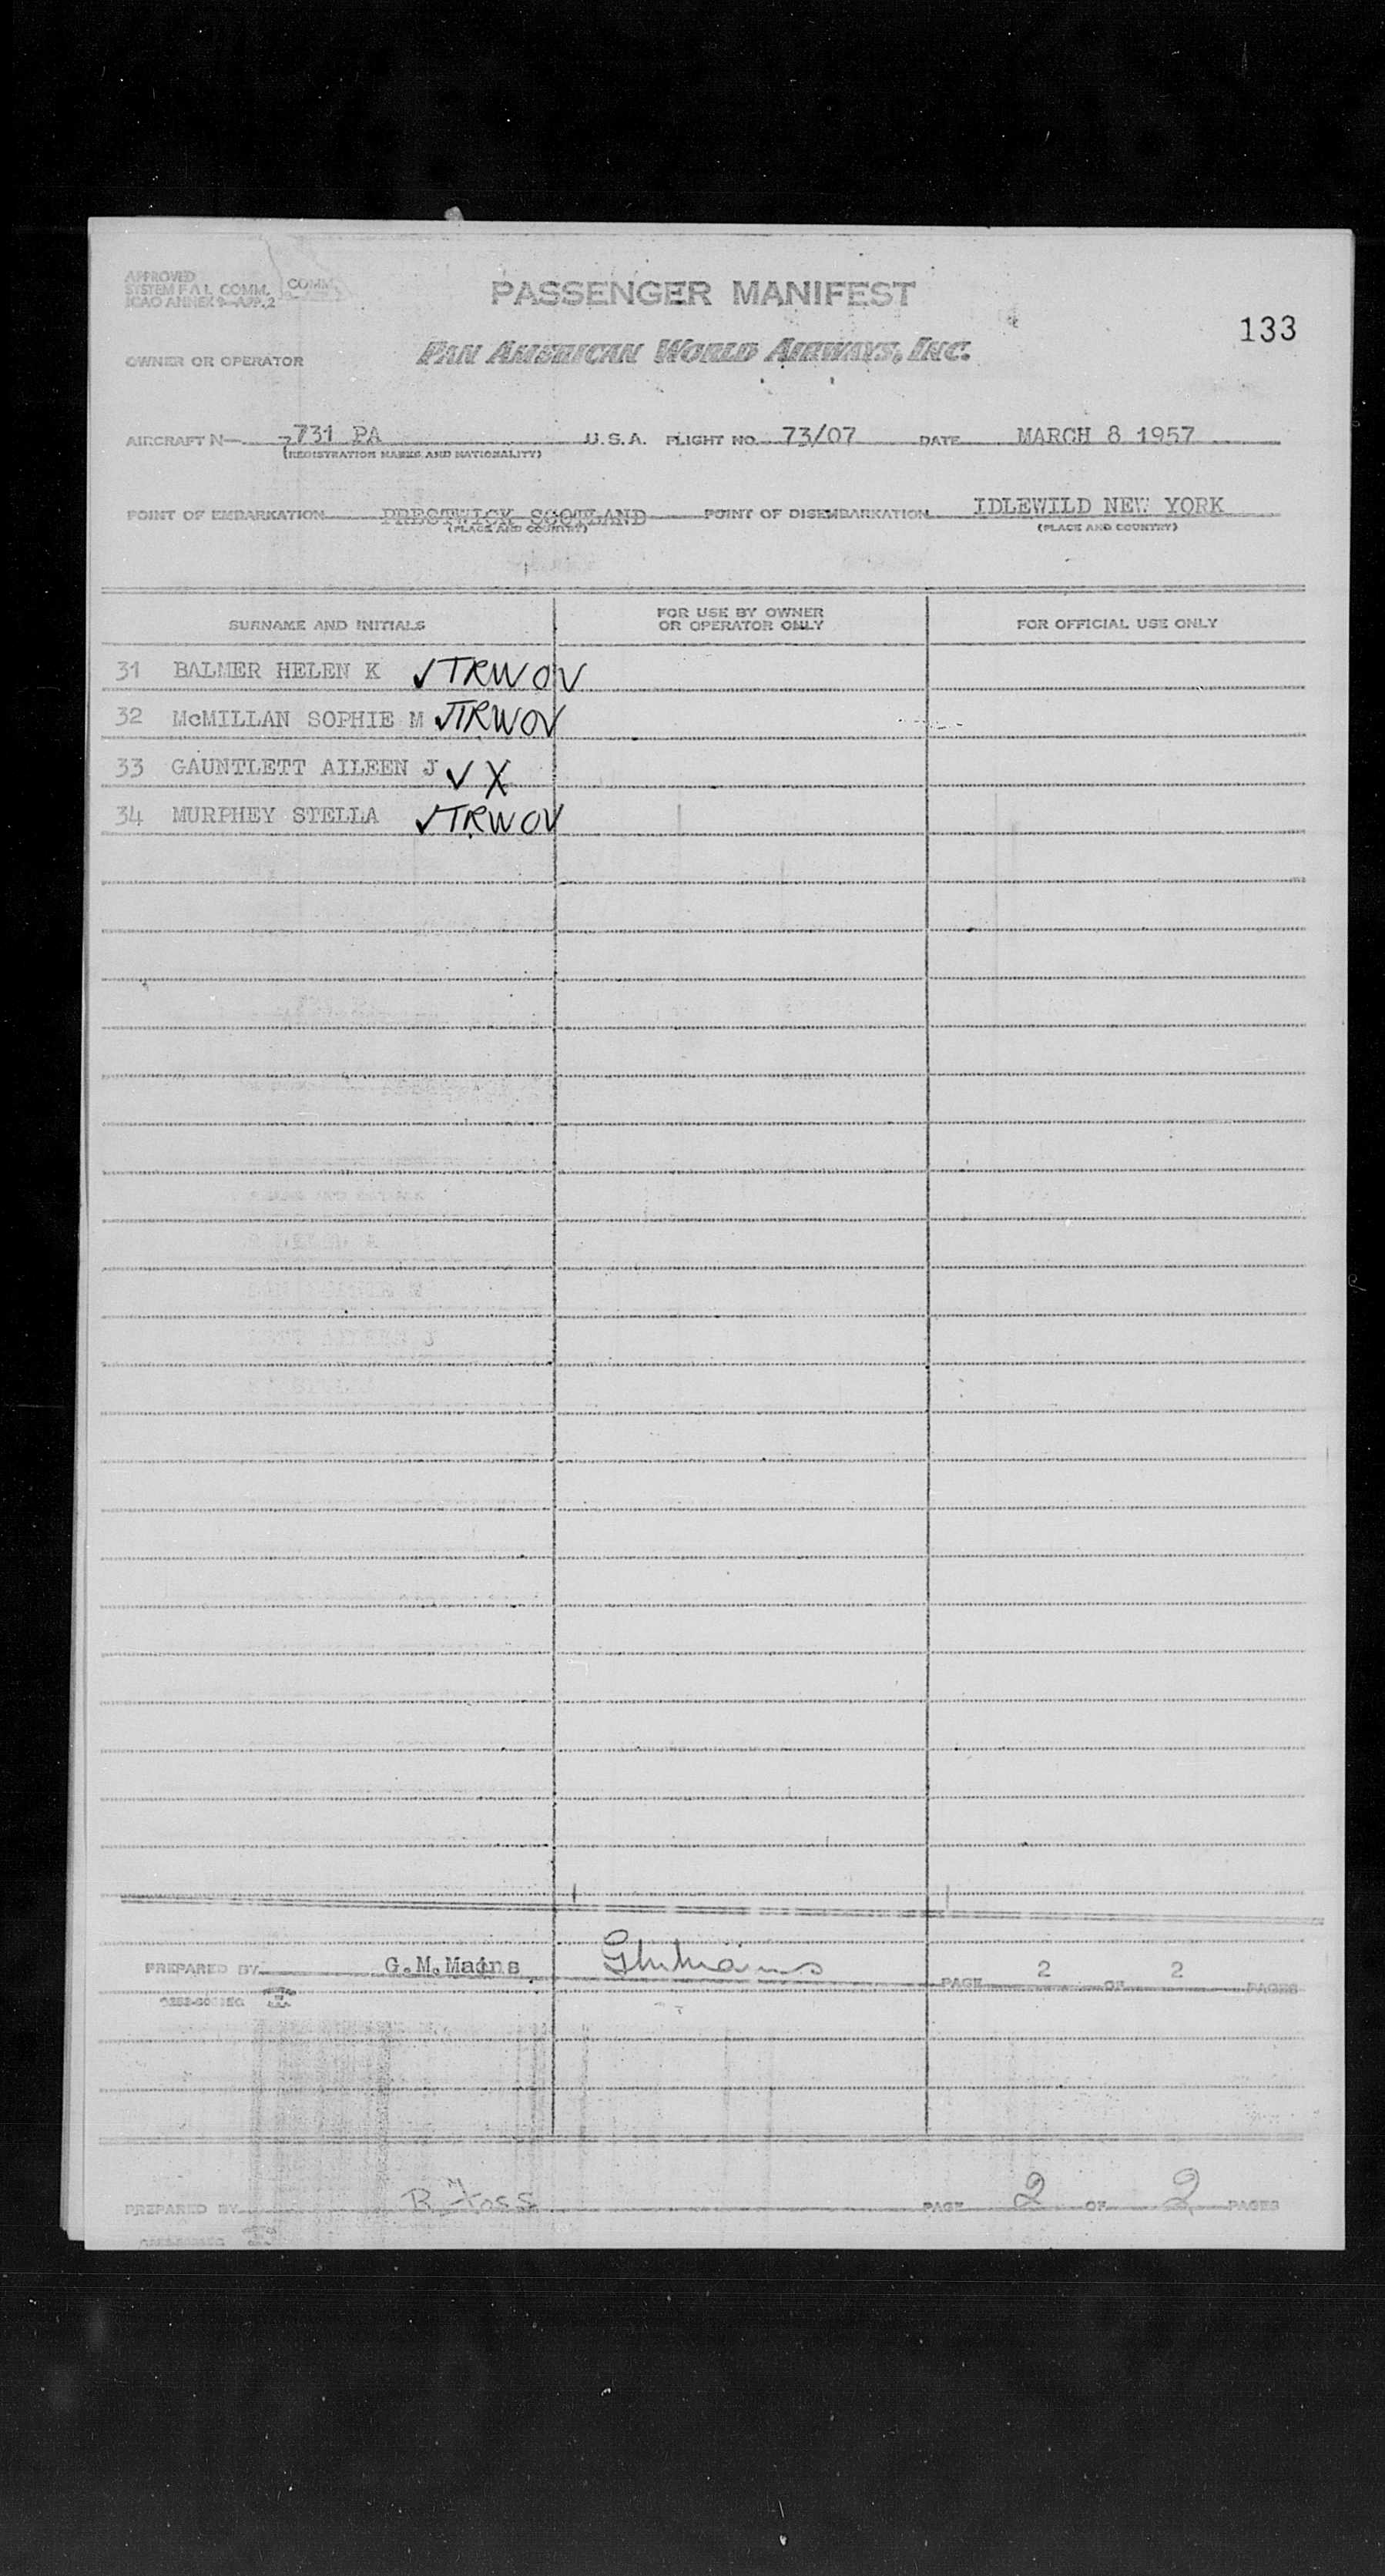 APPROVED
SYSTEM F A L COMM.
ICAO ANNEX 9—APP. 2
COMM.
PASSENGER MANIFEST
133
OWNER OR OPERATOR PAN AMERICAN WORLD AIRWAYS, INC.
AIRCRAFT N— 731 PA U.S.A. FLIGHT NO. 73/07 DATE MARCH 8 1957
(REGISTRATION MARKS AND NATIONALITY)
POINT OF EMBARKATION PRESTWICK SCOTLAND POINT OF DISEMBARKATION IDLEWILD NEW YORK
(PLACE AND COUNTRY) (PLACE AND COUNTRY)
SURNAME AND INITIALS
FOR USE BY OWNER
OR OPERATOR ONLY
FOR OFFICIAL USE ONLY
31 BALMER HELEN K ✓TRWOV
32 McMILLAN SOPHIE M ✓TRWOV
33 GAUNTLETT AILEEN J ✓ X
34 MURPHEY STELLA ✓TRWOV
PREPARED BY G.M.Mains PAGE 2 OF 2 PAGES
PREPARED BY PAGE 2 OF 2 PAGES